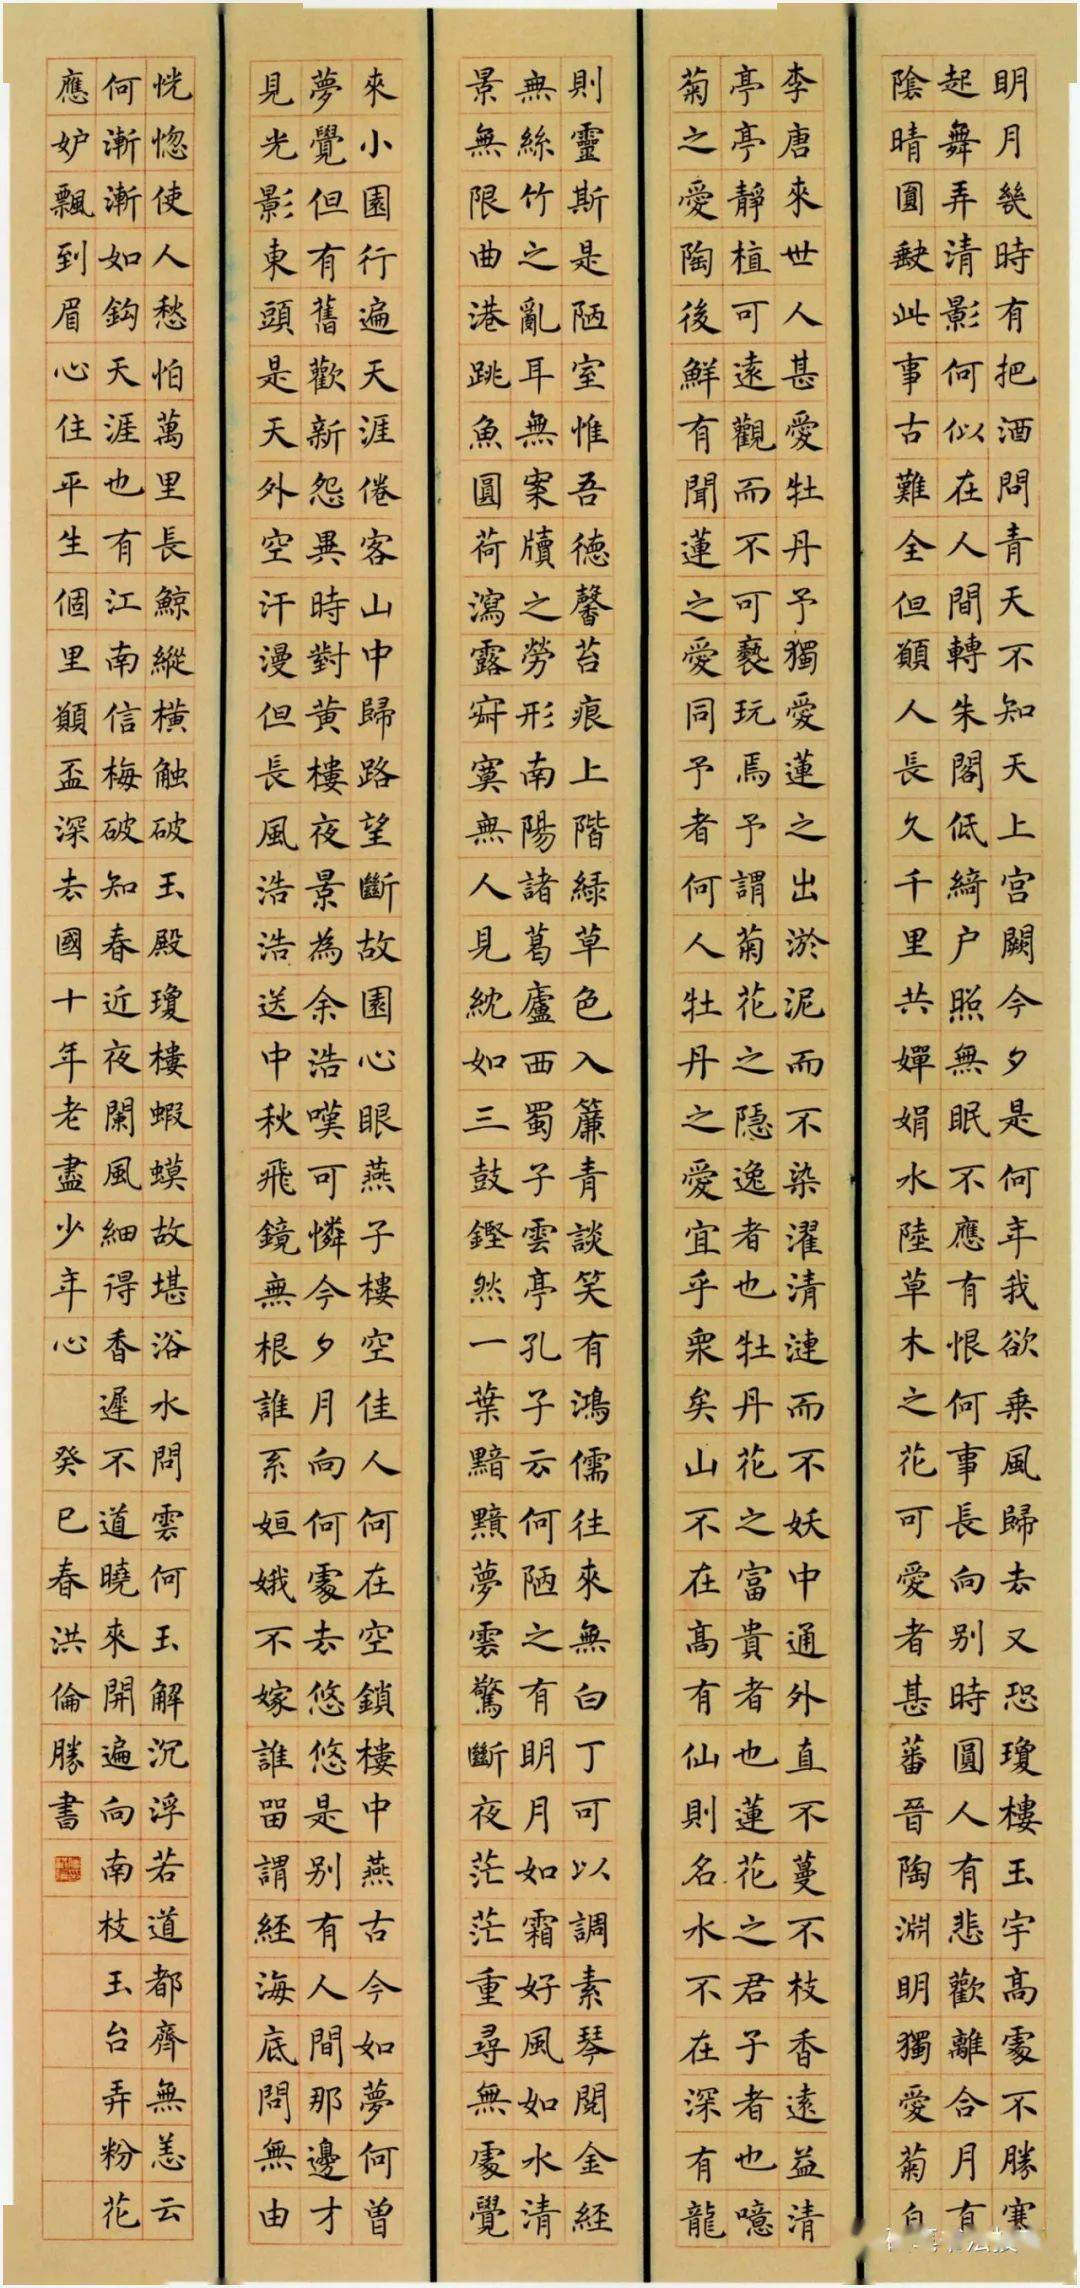 明月幾時有把酒問青天不知天上宮闕今夕是何年我欲乘風歸去又恐瓊樓玉宇高處不勝寒
起舞弄清影何似在人間轉朱閣低綺户照無眠不應有恨何事長向别時圓人有悲歡離合月有
陰晴圓缺此事古難全但願人長久千里共嬋娟水陸草木之花可愛者甚蕃晉陶淵明獨愛菊自
李唐來世人甚愛牡丹予獨愛蓮之出淤泥而不染濯清漣而不妖中通外直不蔓不枝香遠益清
亭亭靜植可遠觀而不可褻玩焉予謂菊花之隱逸者也牡丹花之富貴者也蓮花之君子者也噫
菊之愛陶後鮮有聞蓮之愛同予者何人牡丹之愛宜乎衆矣山不在高有仙則名水不在深有龍
則靈斯是陋室惟吾德馨苔痕上階緑草色入簾青談笑有鴻儒往來無白丁可以調素琴閱金經
無絲竹之亂耳無案牘之勞形南陽諸葛廬西蜀子雲亭孔子云何陋之有明月如霜好風如水清
景無限曲港跳魚圓荷瀉露寂寞無人見紞如三鼓鏗然一葉黯黯夢雲驚斷夜茫茫重尋無處覺
來小園行遍天涯倦客山中歸路望斷故園心眼燕子樓空佳人何在空鎖樓中燕古今如夢何曾
夢覺但有舊歡新怨異時對黃樓夜景為余浩嘆可憐今夕月向何處去悠悠是别有人間那邊才
見光影東頭是天外空汗漫但長風浩浩送中秋飛鏡無根誰系姮娥不嫁誰留謂經海底問無由
恍惚使人愁怕萬里長鯨縱橫触破玉殿瓊樓蝦蟆故堪浴水問雲何玉解沉浮若道都齊無恙云
何漸漸如鈎天涯也有江南信梅破知春近夜闌風細得香遲不道曉來開遍向南枝玉台弄粉花
應妒飄到眉心住平生個里願盃深去國十年老盡少年心 癸巳春洪倫勝書